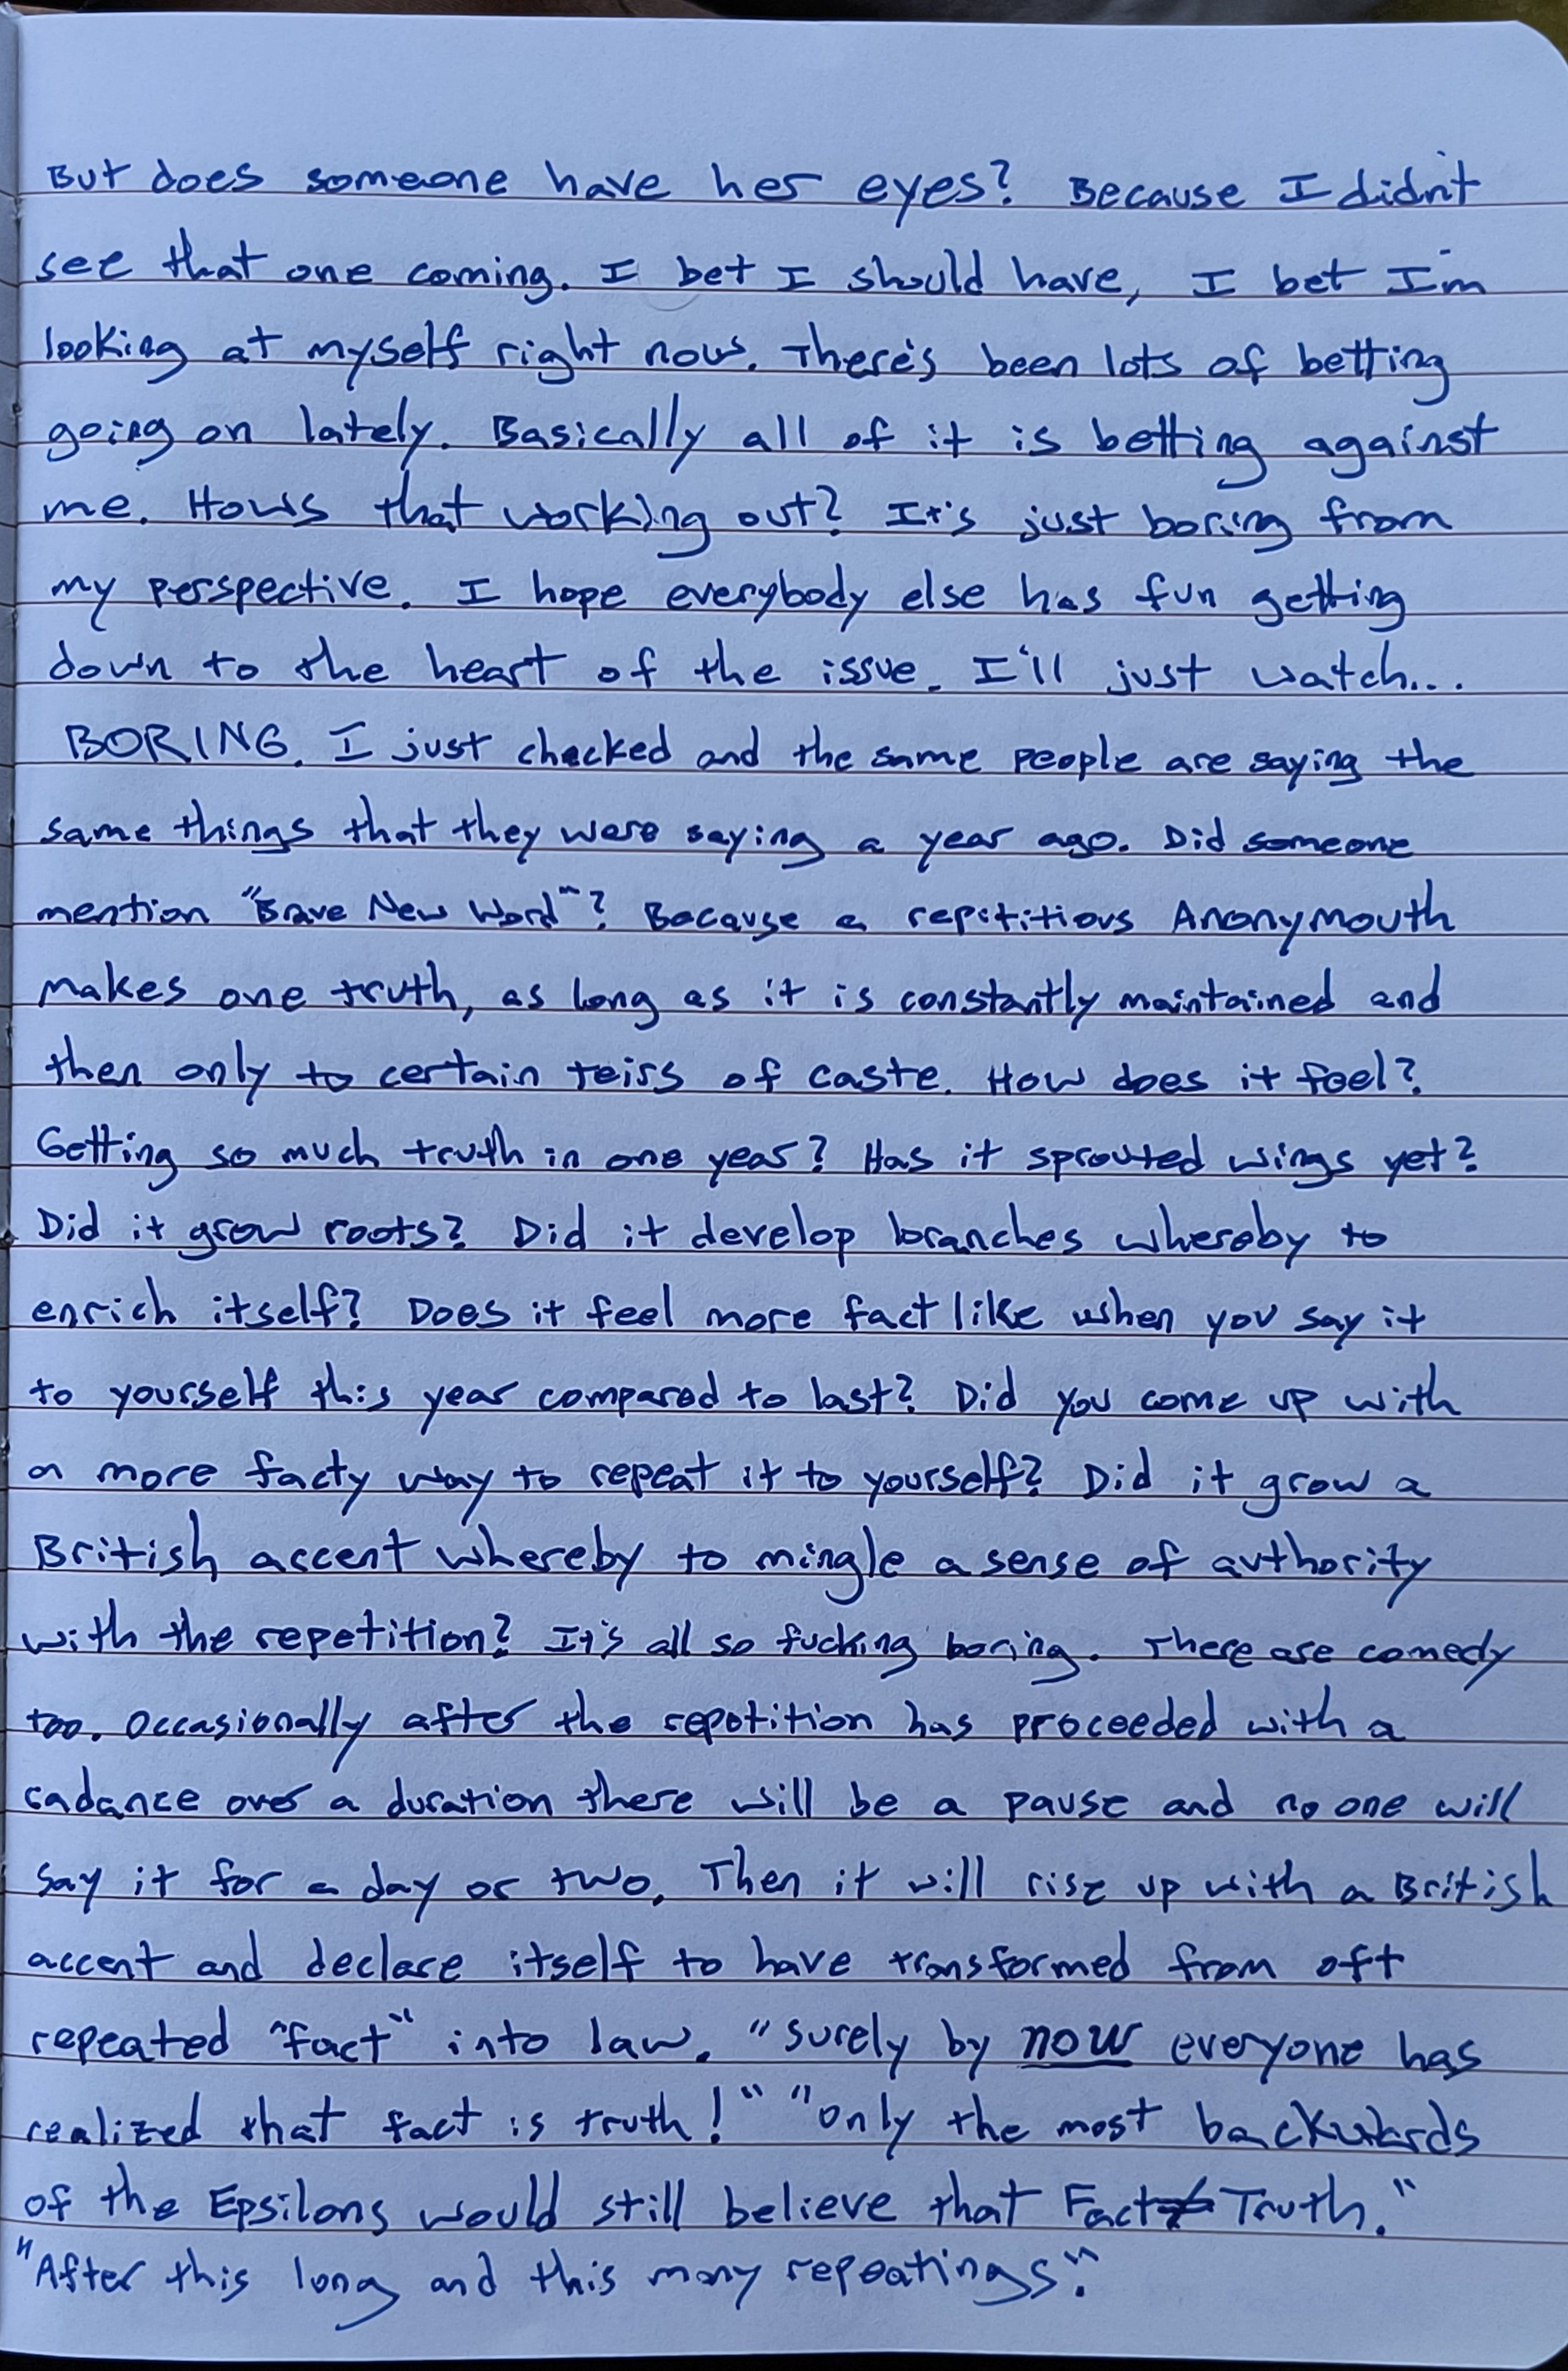 But does someone have her eyes? Because I didn't
see that one coming. I bet I should have, I bet I'm
looking at myself right now. There's been lots of betting
going on lately. Basically all of it is betting against
me. Hows that working out? It's just boring from
my perspective. I hope everybody else has fun getting
down to the heart of the issue. I'll just watch...
BORING. I just checked and the same people are saying the
same things that they were saying a year ago. Did someone
mention "Brave New Word"? Because a repititious Anonymouth
makes one truth, as long as it is constantly maintained and
then only to certain teirs of caste. How does it feel?
Getting so much truth in one year? Has it sprouted wings yet?
Did it grow roots? Did it develop branches whereby to
enrich itself? Does it feel more fact like when you say it
to yourself this year compared to last? Did you come up with
a more facty way to repeat it to yourself? Did it grow a
British accent whereby to mingle a sense of authority
with the repetition? It's all so fucking boring. There are comedy
too. Occasionally after the repetition has proceeded with a
cadance over a duration there will be a pause and no one will
say it for a day or two. Then it will rise up with a British
accent and declare itself to have transformed from oft
repeated "fact" into law. "Surely by now everyone has
realized that fact is truth!" "Only the most backwards
of the Epsilons would still believe that Fact≠Truth."
"After this long and this many repeatings".